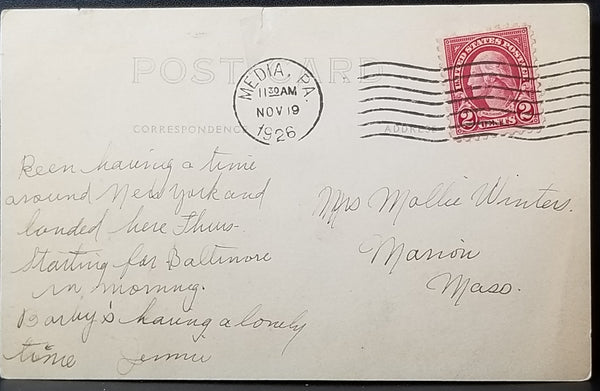 POST CARD
MEDIA, PA.
11 30 AM
NOV 19
1926
UNITED STATES POSTAGE
2 CENTS 2
CORRESPONDENCE
ADDRESS
Been having a time
around New York and
landed here Thurs-
Starting for Baltimore
in morning.
having a lonely
time Jennie
Mrs Mollie Winters.
Marion
Mass.